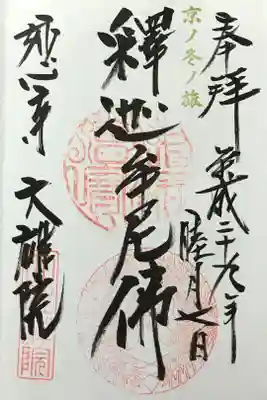 奉拝
平成二十九年
睦月七日
京ノ冬ノ旅
釋迦牟尼佛
妙心寺
大雄院